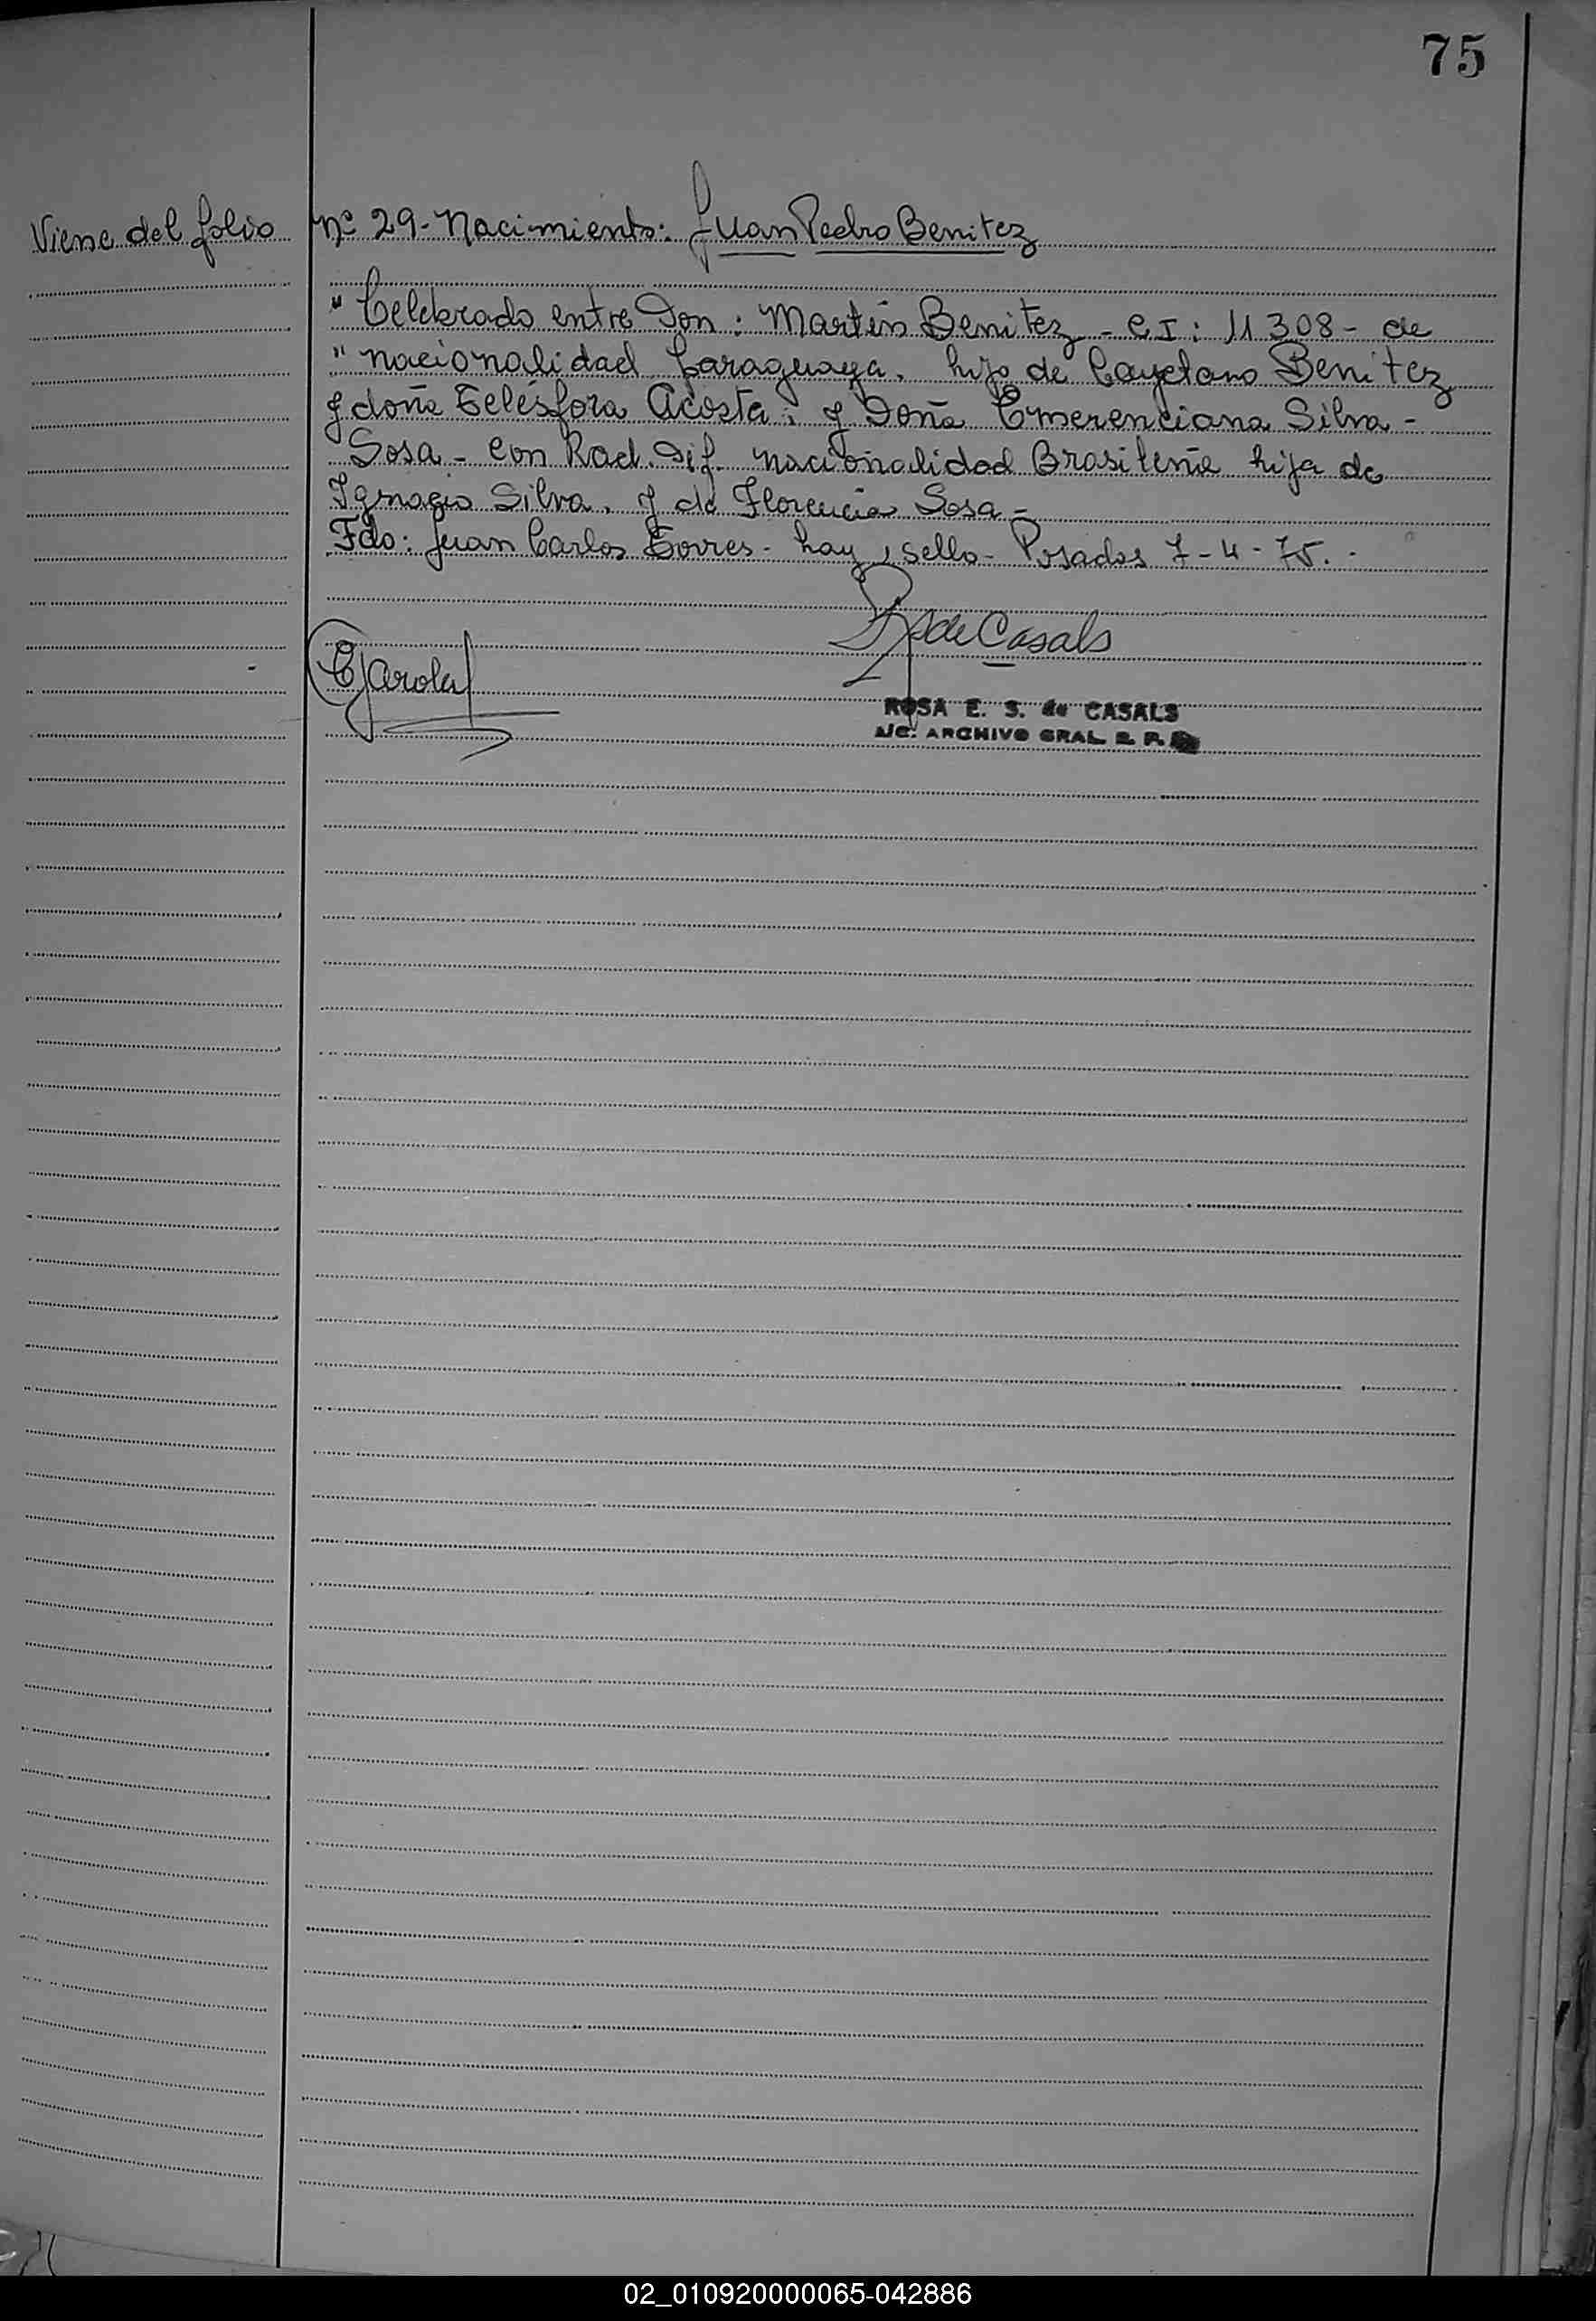 75
Viene del folio nº 29- Nacimiento: Juan Pedro Benitez
"Celebrado entre Don: Martin Benitez - C.I: 11.308- de
"nacionalidad Paraguaya, hijo de Cayetano Benitez
y doña Telésfora Acosta; y Doña Emerenciana Silva-
Sosa- Con Rad. Dif. nacionalidad Brasileña hija de
Ignacio Silva, y de Florencia Sosa-
Fdo: Juan Carlos Torres- hay sello- Posadas 7-4-75.-
de Casals
ROSA E. S. de CASALS
A/C. ARCHIVO GRAL. R. P.
02_010920000065-042886